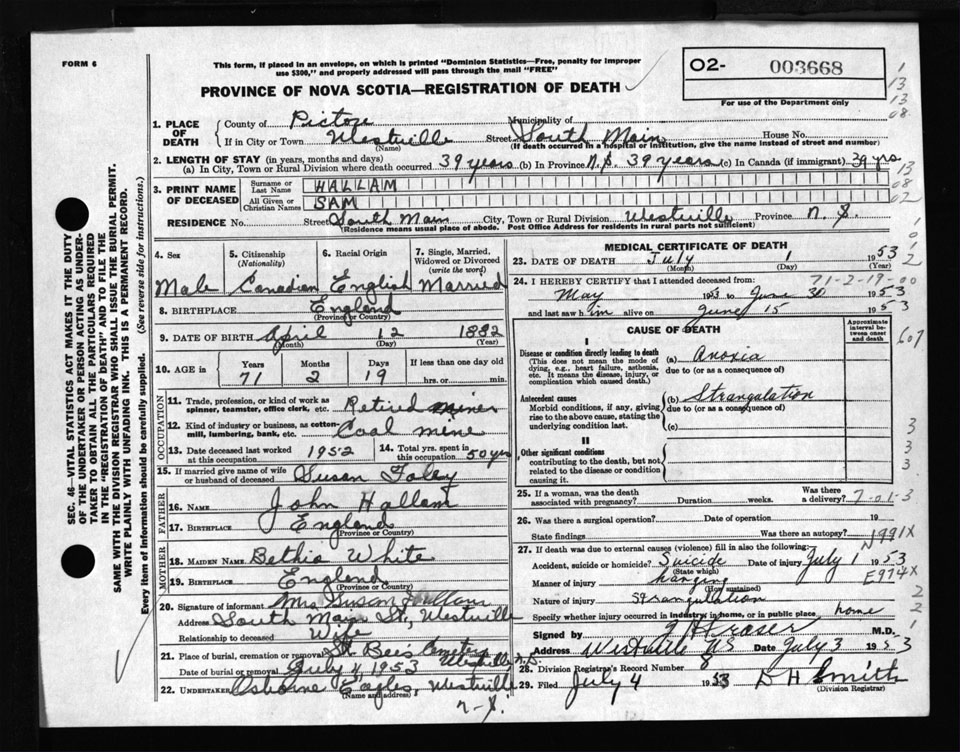 FORM 6
This form, if placed in an envelope, on which is printed "Dominion Statistics—Free, penalty for improper
use $300," and properly addressed will pass through the mail "FREE"
02- 003668
For use of the Department only
PROVINCE OF NOVA SCOTIA—REGISTRATION OF DEATH
1. PLACE OF DEATH
County of Pictou Municipality of
If in City or Town Westville Street South Main House No.
(Name) (If death occurred in a hospital or institution, give the name instead of street and number)
2. LENGTH OF STAY (in years, months and days)
(a) In City, Town or Rural Division where death occurred 39 years (b) In Province N.S. 39 years (c) In Canada (if immigrant) 39 yrs
3. PRINT NAME OF DECEASED
Surname or Last Name HALLAM
All Given or Christian Names SAM
RESIDENCE No. Street South Main City, Town or Rural Division Westville Province N.S.
(Residence means usual place of abode. Post Office Address for residents in rural parts not sufficient)
4. Sex
Male
5. Citizenship (Nationality)
Canadian
6. Racial Origin
English
7. Single, Married, Widowed or Divorced (write the word)
Married
8. BIRTHPLACE England
(Province or Country)
9. DATE OF BIRTH April 12 1882
(Month) (Day) (Year)
10. AGE in Years Months Days If less than one day old
71 2 19 hrs. or min.
OCCUPATION
11. Trade, profession, or kind of work as spinner, teamster, office clerk, etc. Retired miner
12. Kind of industry or business, as cotton-mill, lumbering, bank, etc. Coal mine
13. Date deceased last worked at this occupation 1952
14. Total yrs. spent in this occupation 50 yrs
15. If married give name of wife or husband of deceased Susan Foley
FATHER
16. Name John Hallam
17. Birthplace England
(Province or Country)
MOTHER
18. MAIDEN NAME Bethia White
19. BIRTHPLACE England
(Province or Country)
20. Signature of informant Mrs Susan Hallam
Address South Main St., Westville
Relationship to deceased Wife
21. Place of burial, cremation or removal St. Bees Cemetery
Date of burial or removal July 4, 1953 Westville N.S.
22. UNDERTAKER Osborne Eagles, Westville
(Name and address)
N.S.
MEDICAL CERTIFICATE OF DEATH
23. DATE OF DEATH July 1 1953
(Month) (Day) (Year)
24. I HEREBY CERTIFY that I attended deceased from: 71-2-19-00
May 1953 to June 30 1953
and last saw him alive on June 15 1953
CAUSE OF DEATH
Approximate interval between onset and death
I
Disease or condition directly leading to death
(This does not mean the mode of dying, e.g., heart failure, asthenia, etc. It means the disease, injury, or complication which caused death.)
(a) Anoxia
due to (or as a consequence of)
Antecedent causes
Morbid conditions, if any, giving rise to the above cause, stating the underlying condition last.
(b) Strangulation
due to (or as a consequence of)
(c)
II
Other significant conditions
contributing to the death, but not related to the disease or condition causing it.
25. If a woman, was the death associated with pregnancy? Duration weeks. Was there a delivery?
26. Was there a surgical operation? Date of operation 19
State findings Was there an autopsy?
N991X
27. If death was due to external causes (violence) fill in also the following:
Accident, suicide or homicide? Suicide Date of injury July 1 1953
(State which)
Manner of injury hanging E974X
(How sustained)
Nature of injury Strangulation
Specify whether injury occurred in industry, in home, or in public place home
Signed by Fraser M.D.
Address Westville NS Date July 3 1953
28. Division Registrar's Record Number 8
29. Filed July 4 1953 D H Smith
(Division Registrar)
SEC. 46—VITAL STATISTICS ACT MAKES IT THE DUTY
OF THE UNDERTAKER OR PERSON ACTING AS UNDER-
TAKER TO OBTAIN ALL THE PARTICULARS REQUIRED
IN THE "REGISTRATION OF DEATH" AND TO FILE THE
SAME WITH THE DIVISION REGISTRAR WHO SHALL ISSUE THE BURIAL PERMIT.
WRITE PLAINLY WITH UNFADING INK. THIS IS A PERMANENT RECORD.
Every item of Information should be carefully supplied. (See reverse side for instructions.)